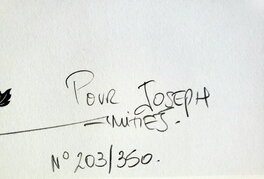 Pour JOSEPH
AMITIÉS.
N° 203/350.